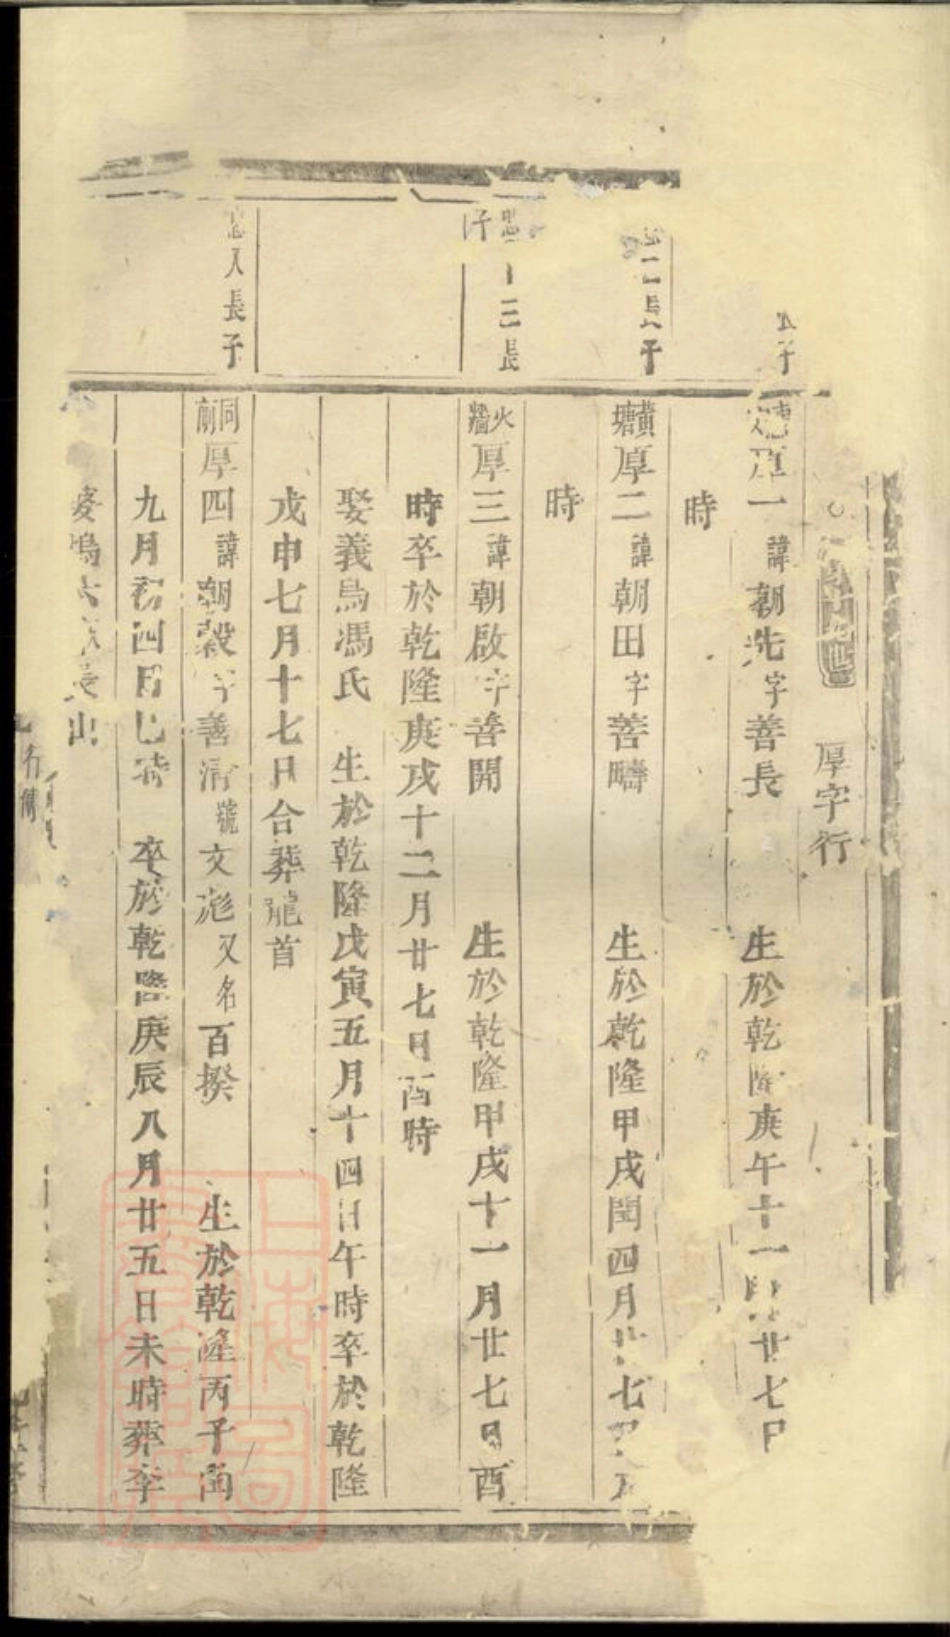 厚字行
子
厚一諱朝先字善長 生於乾隆庚午十一月廿七日
時
二長子
黃塘厚二諱朝田字善疇 生於乾隆甲戌閏四月廿七
時
十三長子
火牆厚三諱朝啟字善開 生於乾隆甲戌十一月廿七日酉
時卒於乾隆庚戌十二月廿七日酉時
娶義烏馮氏 生於乾隆戊寅五月十四日午時卒於乾隆
戊申七月十七日合葬龍首
八長子
同前厚四諱朝穀字善清號文彪又名百揆 生於乾隆丙子
九月初四日巳時 卒於乾隆庚辰八月廿五日未時葬
山